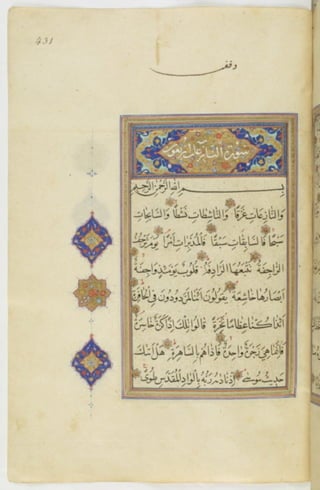 431
وقف
سورة النازعات
بِسْمِ اللهِ الرَّحْمٰنِ الرَّحِيمِ
وَالنَّازِعَاتِ غَرْقًا وَالنَّاشِطَاتِ نَشْطًا وَالسَّابِحَاتِ
سَبْحًا فَالسَّابِقَاتِ سَبْقًا فَالْمُدَبِّرَاتِ أَمْرًا يَوْمَ تَرْجُفُ
الرَّاجِفَةُ تَتْبَعُهَا الرَّادِفَةُ قُلُوبٌ يَوْمَئِذٍ وَاجِفَةٌ
أَبْصَارُهَا خَاشِعَةٌ يَقُولُونَ أَئِنَّا لَمَرْدُودُونَ فِي الْحَافِرَةِ
أَئِذَا كُنَّا عِظَامًا نَخِرَةً قَالُوا تِلْكَ إِذًا كَرَّةٌ خَاسِرَةٌ
فَإِنَّمَا هِيَ زَجْرَةٌ وَاحِدَةٌ فَإِذَا هُمْ بِالسَّاهِرَةِ هَلْ أَتٰىكَ
حَدِيثُ مُوسٰى إِذْ نَادٰىهُ رَبُّهُ بِالْوَادِ الْمُقَدَّسِ طُوًى